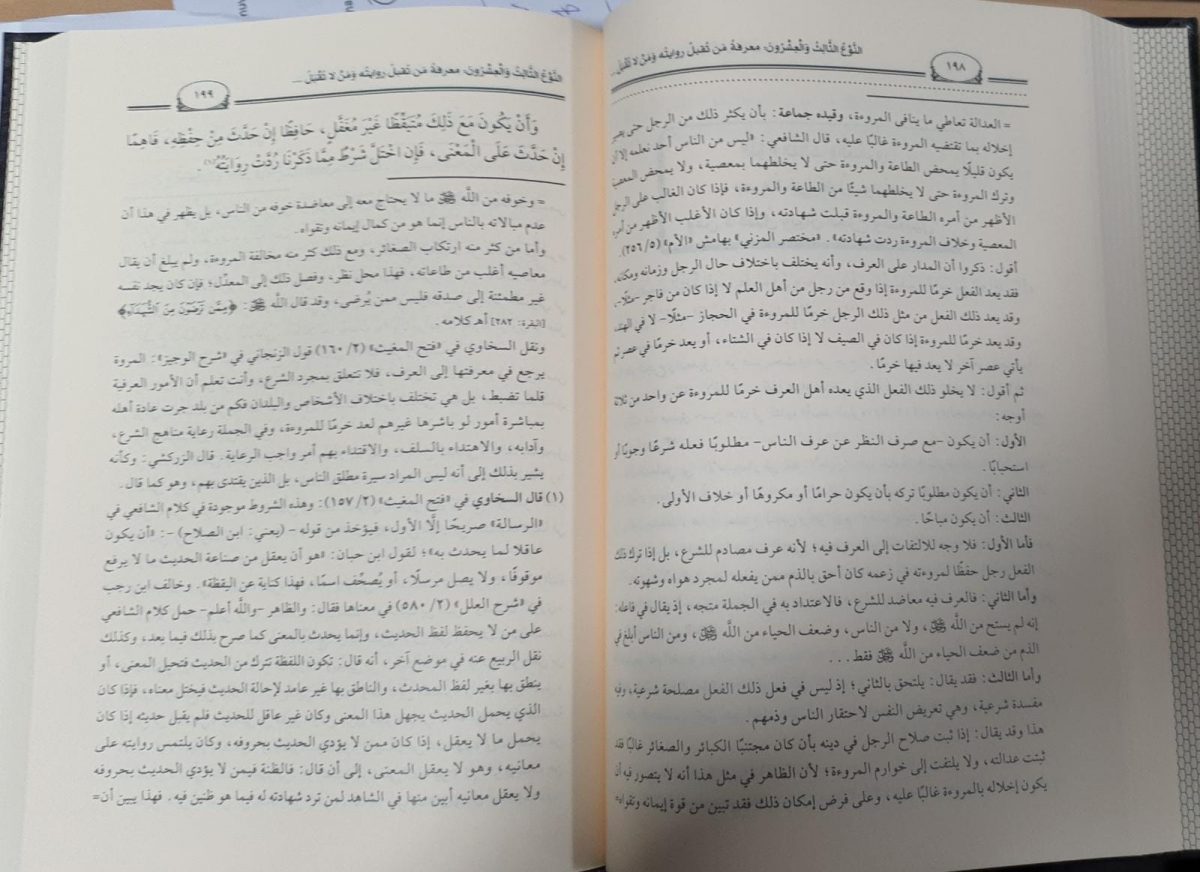 النَّوْعُ الثَّالِثُ وَالْعِشْرُونَ، معرفةُ مَن تُقبلُ روايتُه وَمَنْ لا تُقْبَلُ ...
١٩٨
= العدالة تعاطي ما ينافى المروءة، وقيده جماعة: بأن يكثر ذلك من الرجل حتى يصير
إخلاله بما تقتضيه المروءة غالبًا عليه، قال الشافعي: «ليس من الناس أحد نعلمه إلا أن
يكون قليلًا بمحض الطاعة والمروءة حتى لا يخلطهما بمعصية، ولا يمحض المعصية
وترك المروءة حتى لا يخلطهما شيئًا من الطاعة والمروءة، فإذا كان الغالب على الرجل
الأظهر من أمره الطاعة والمروءة قبلت شهادته، وإذا كان الأغلب الأظهر من أمره
المعصية وخلاف المروءة ردت شهادته». «مختصر المزني» بهامش «الأم» (٢٥٦/٥).
أقول: ذكروا أن المدار على العرف، وأنه يختلف باختلاف حال الرجل وزمانه ومكانه،
فقد يعد الفعل خرمًا للمروءة إذا وقع من رجل من أهل العلم لا إذا كان من فاجر -مثلًا-،
وقد يعد ذلك الفعل من مثل ذلك الرجل خرمًا للمروءة في الحجاز -مثلًا- لا في الهند،
وقد يعد خرمًا للمروءة إذا كان في الصيف لا إذا كان في الشتاء، أو يعد خرمًا في عصر ثم
يأتي عصر آخر لا يعد فيها خرمًا.
ثم أقول: لا يخلو ذلك الفعل الذي يعده أهل العرف خرمًا للمروءة عن واحد من ثلاثة
أوجه:
الأول: أن يكون -مع صرف النظر عن عرف الناس- مطلوبًا فعله شرعًا وجوبًا أو
استحبابًا.
الثاني: أن يكون مطلوبًا تركه بأن يكون حرامًا أو مكروهًا أو خلاف الأولى.
الثالث: أن يكون مباحًا.
فأما الأول: فلا وجه للالتفات إلى العرف فيه؛ لأنه عرف مصادم للشرع، بل إذا ترك ذلك
الفعل رجل حفظًا لمروءته في زعمه كان أحق بالذم ممن يفعله لمجرد هواه وشهوته.
وأما الثاني: فالعرف فيه معاضد للشرع، فالاعتداد به في الجملة متجه، إذ يقال في فاعله:
إنه لم يستح من اللَّه ﷻ، ولا من الناس، وضعف الحياء من اللَّه ﷻ، ومن الناس أبلغ في
الذم من ضعف الحياء من اللَّه ﷻ فقط...
وأما الثالث: فقد يقال: يلتحق بالثاني؛ إذ ليس في فعل ذلك الفعل مصلحة شرعية، وفيه
مفسدة شرعية، وهي تعريض النفس لاحتقار الناس وذمهم.
هذا وقد يقال: إذا ثبت صلاح الرجل في دينه بأن كان مجتنبًا الكبائر والصغائر غالبًا فقد
ثبتت عدالته، ولا يلتفت إلى خوارم المروءة؛ لأن الظاهر في مثل هذا أنه لا يتصور فيه أن
يكون إخلاله بالمروءة غالبًا عليه، وعلى فرض إمكان ذلك فقد تبين من قوة إيمانه وتقواه=
النَّوْعُ الثَّالِثُ وَالْعِشْرُونَ، معرفةُ مَن تُقبلُ روايتُه وَمَنْ لا تُقْبَلُ ...
١٩٩
وَأَنْ يَكُونَ مَعَ ذَلِكَ مُتَيَقِّظًا غَيْرَ مُغَفَّلٍ، حَافِظًا إِنْ حَدَّثَ مِنْ حِفْظِهِ، فَاهِمًا
إِنْ حَدَّثَ عَلَى الْمَعْنَى، فَإِن اخْتَلَّ شَرْطٌ مِمَّا ذَكَرْنَا رُدَّتْ رِوَايَتُهُ(١).
= وخوفه من اللَّه ﷻ ما لا يحتاج معه إلى معاضدة خوفه من الناس، بل يظهر في هذا أن
عدم مبالاته بالناس إنما هو من كمال إيمانه وتقواه.
وأما من كثر منه ارتكاب الصغائر، ومع ذلك كثر منه مخالفة المروءة، ولم يبلغ أن يقال
معاصيه أغلب من طاعاته، فهذا محل نظر، وفصل ذلك إلى المعدِّل؛ فإن كان يجد نفسه
غير مطمئنة إلى صدقه فليس ممن يُرضى، وقد قال اللَّه ﷻ: ﴿مِمَّن تَرْضَوْنَ مِنَ الشُّهَدَاءِ﴾
[البقرة: ٢٨٢] أهـ كلامه.
ونقل السخاوي في «فتح المغيث» (٢/ ١٦٠) قول الزنجاني في «شرح الوجيز»: المروة
يرجع في معرفتها إلى العرف، فلا تتعلق بمجرد الشرع، وأنت تعلم أن الأمور العرفية
قلما تضبط، بل هي تختلف باختلاف الأشخاص والبلدان فكم من بلد جرت عادة أهله
بمباشرة أمور لو باشرها غيرهم لعد خرمًا للمروءة، وفي الجملة رعاية مناهج الشرع،
وآدابه، والاهتداء بالسلف، والاقتداء بهم أمر واجب الرعاية. قال الزركشي: وكأنه
يشير بذلك إلى أنه ليس المراد سيرة مطلق الناس، بل الذين يقتدى بهم، وهو كما قال.
(١) قال السخاوي في «فتح المغيث» (٢/ ١٥٧): وهذه الشروط موجودة في كلام الشافعي في
«الرسالة» صريحًا إلَّا الأول، فيؤخذ من قوله- (يعني: ابن الصلاح) -: «أن يكون
عاقلا لما يحدث به»؛ لقول ابن حبان: «هو أن يعقل من صناعة الحديث ما لا يرفع
موقوفًا، ولا يصل مرسلًا، أو يُصحِّف اسمًا، فهذا كناية عن اليقظة». وخالف ابن رجب
في «شرح العلل» (٢/ ٥٨٠) في معناها فقال: والظاهر -واللَّه أعلم- حمل كلام الشافعي
على من لا يحفظ لفظ الحديث، وإنما يحدث بالمعنى كما صرح بذلك فيما بعد، وكذلك
نقل الربيع عنه في موضع آخر، أنه قال: تكون اللفظة تترك من الحديث فتحيل المعنى، أو
ينطق بها بغير لفظ المحدث، والناطق بها غير عامد لإحالة الحديث فيختل معناه، فإذا كان
الذي يحمل الحديث يجهل هذا المعنى وكان غير عاقل للحديث فلم يقبل حديثه إذا كان
يحمل ما لا يعقل، إذا كان ممن لا يؤدي الحديث بحروفه، وكان يلتمس روايته على
معانيه، وهو لا يعقل المعنى، إلى أن قال: فالظنة فيمن لا يؤدي الحديث بحروفه
ولا يعقل معانيه أبين منها في الشاهد لمن ترد شهادته له فيما هو ظنين فيه. فهذا يبين أن=